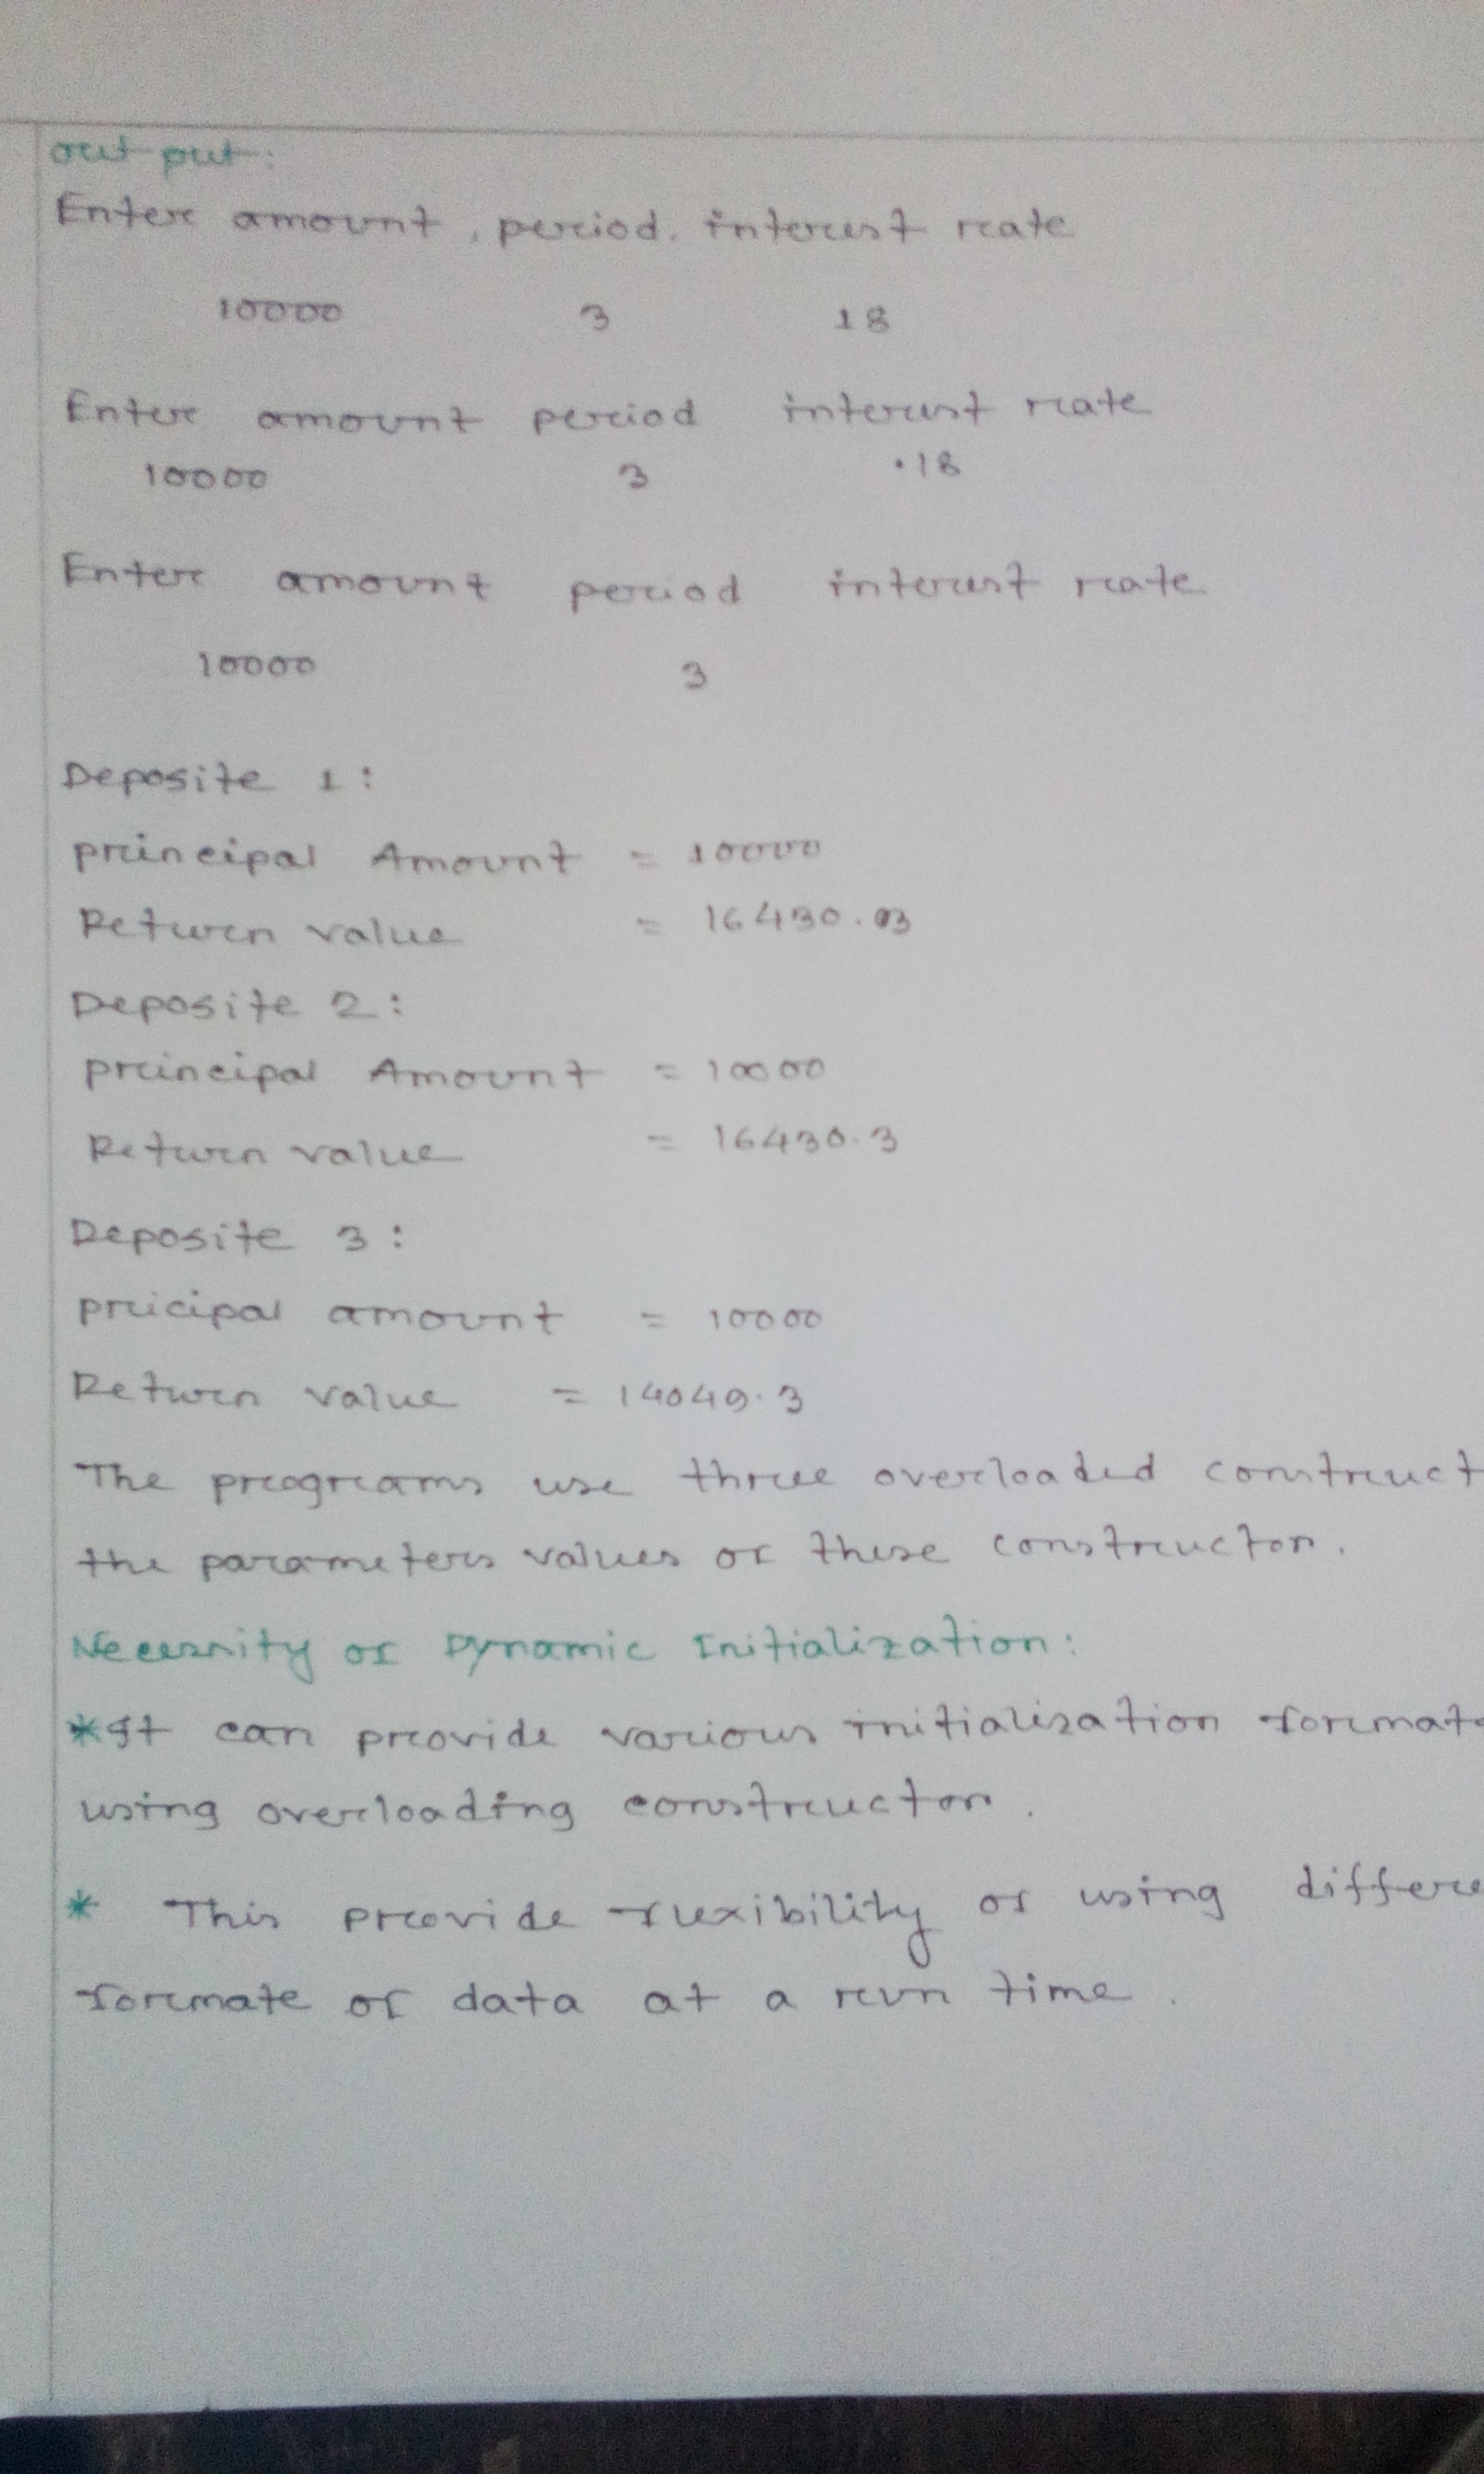 out put:
Enter amount, period, interest rate
10000 3 18
Enter amount period interest rate
10000 3 .18
Enter amount period interest rate
10000 3
Deposite 1:
principal Amount = 10000
Return value = 16430.03
Deposite 2:
principal Amount = 10000
Return value = 16430.3
Deposite 3:
pricipal amount = 10000
Return value = 14049.3
The programs use three overloaded construct
the parameters values of these constructor.
Necessity of Dynamic Initialization:
*It can provide various initialization formate
using overloading constructor.
* This provide flexibility of using differe
formate of data at a run time.